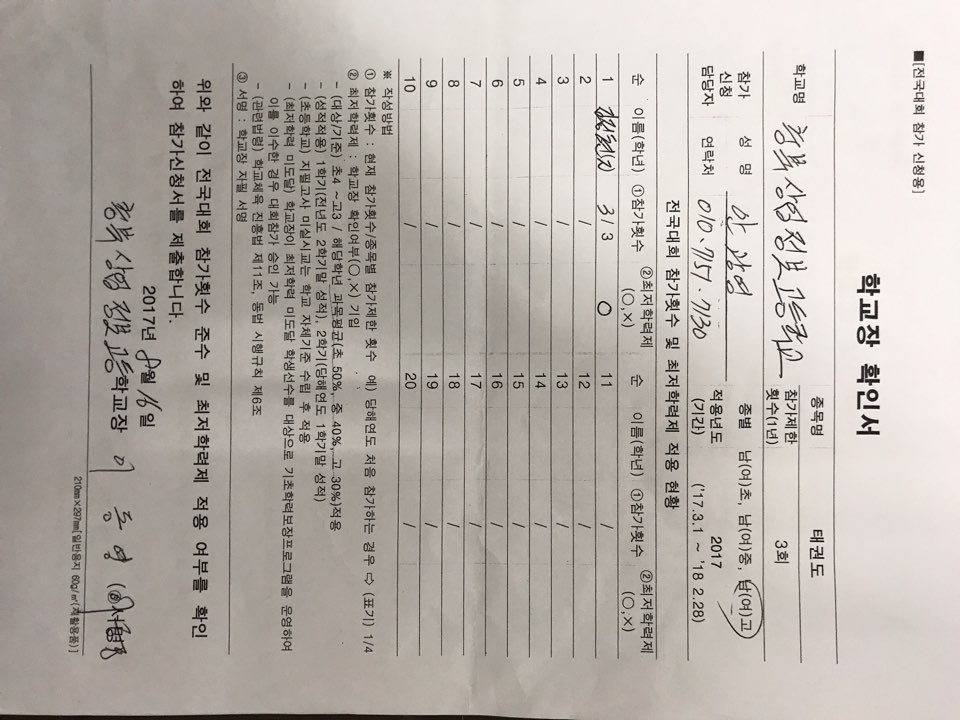 ■[전국대회 참가 신청용]
학교장 확인서
학교명 충북상업정보고등학교 종목명 태권도
참가제한 횟수(1년) 3회
참가 신청 담당자 성 명 종별 남(여)초, 남(여)중, 남(여)고
연락처 010.7715.7130 적용년도 (기간) 2017 ('17.3.1 ~ '18 2.28)
전국대회 참가횟수 및 최저학력제 적용 현황
순 이름(학년) ①참가횟수 ②최저학력제 (○,×) 순 이름(학년) ①참가횟수 ②최저학력제 (○,×)
1 3/3 ○ 11 /
2 / 12 /
3 / 13 /
4 / 14 /
5 / 15 /
6 / 16 /
7 / 17 /
8 / 18 /
9 / 19 /
10 / 20 /
※ 작성방법
① 참가횟수 : 현재 참가횟수/종목별 참가제한 횟수 예) 당해연도 처음 참가하는 경우 ⇨ (표기) 1/4
② 최저학력제 : 학교장 확인여부(○,×) 기입
- (대상/기준) 초4 ~고3 / 해당학년 과목평균(초 50%, 중 40%, 고 30%)적용
- (성적적용) 1학기(전년도 2학기말 성적), 2학기(당해연도 1학기말 성적)
- 초등학교) 지필고사 미실시교는 학교 자체기준 수립 후 적용
- (최저학력 미도달) 학교장이 최저학력 미도달 학생선수를 대상으로 기초학력보장프로그램을 운영하여
이를 이수한 경우 대회참가 승인 가능
- (관련법령) 학교체육 진흥법 제11조, 동법 시행규칙 제6조
③ 서명 : 학교장 자필 서명
위와 같이 전국대회 참가횟수 준수 및 최저학력제 적용 여부를 확인
하여 참가신청서를 제출합니다.
2017년 8월 16일
충북상업정보고등학교장 이 (서명)
210㎜×297㎜[일반용지 60g/㎡(재활용품)]